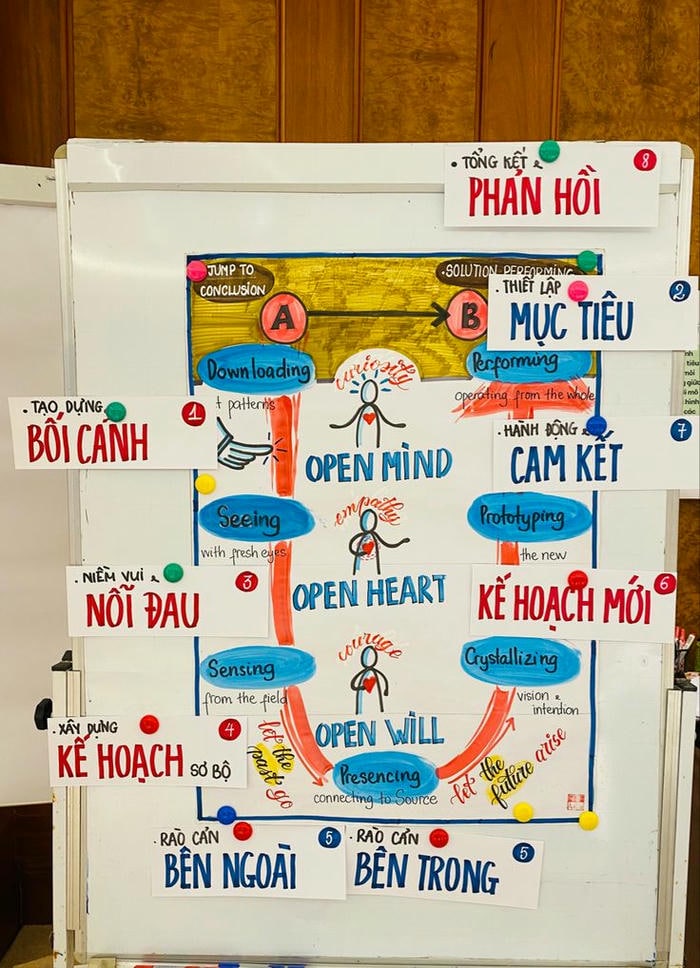 • TỔNG KẾT &
PHẢN HỒI
8
JUMP TO
CONCLUSION
• SOLUTION PERFORMING
A
B
• THIẾT LẬP
MỤC TIÊU
2
Downloading
patterns
curiosity
OPEN MIND
Performing
operating from the whole
• TẠO DỰNG
BỐI CẢNH
1
• HÀNH ĐỘNG &
CAM KẾT
7
Seeing
with fresh eyes
empathy
OPEN HEART
Prototyping
the new
• NIỀM VUI &
NỖI ĐAU
3
KẾ HOẠCH MỚI
6
Sensing
from the field
courage
OPEN WILL
Crystallizing
vision &
intention
• XÂY DỰNG
KẾ HOẠCH SƠ BỘ
4
let the
past go
Presencing
connecting to Source
let the
future arise
• RÀO CẢN
BÊN NGOÀI
5
• RÀO CẢN
BÊN TRONG
5